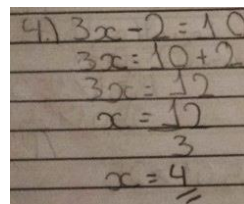 4.) 3x - 2 = 10
3x = 10 + 2
3x = 12
x = 12
3
x = 4